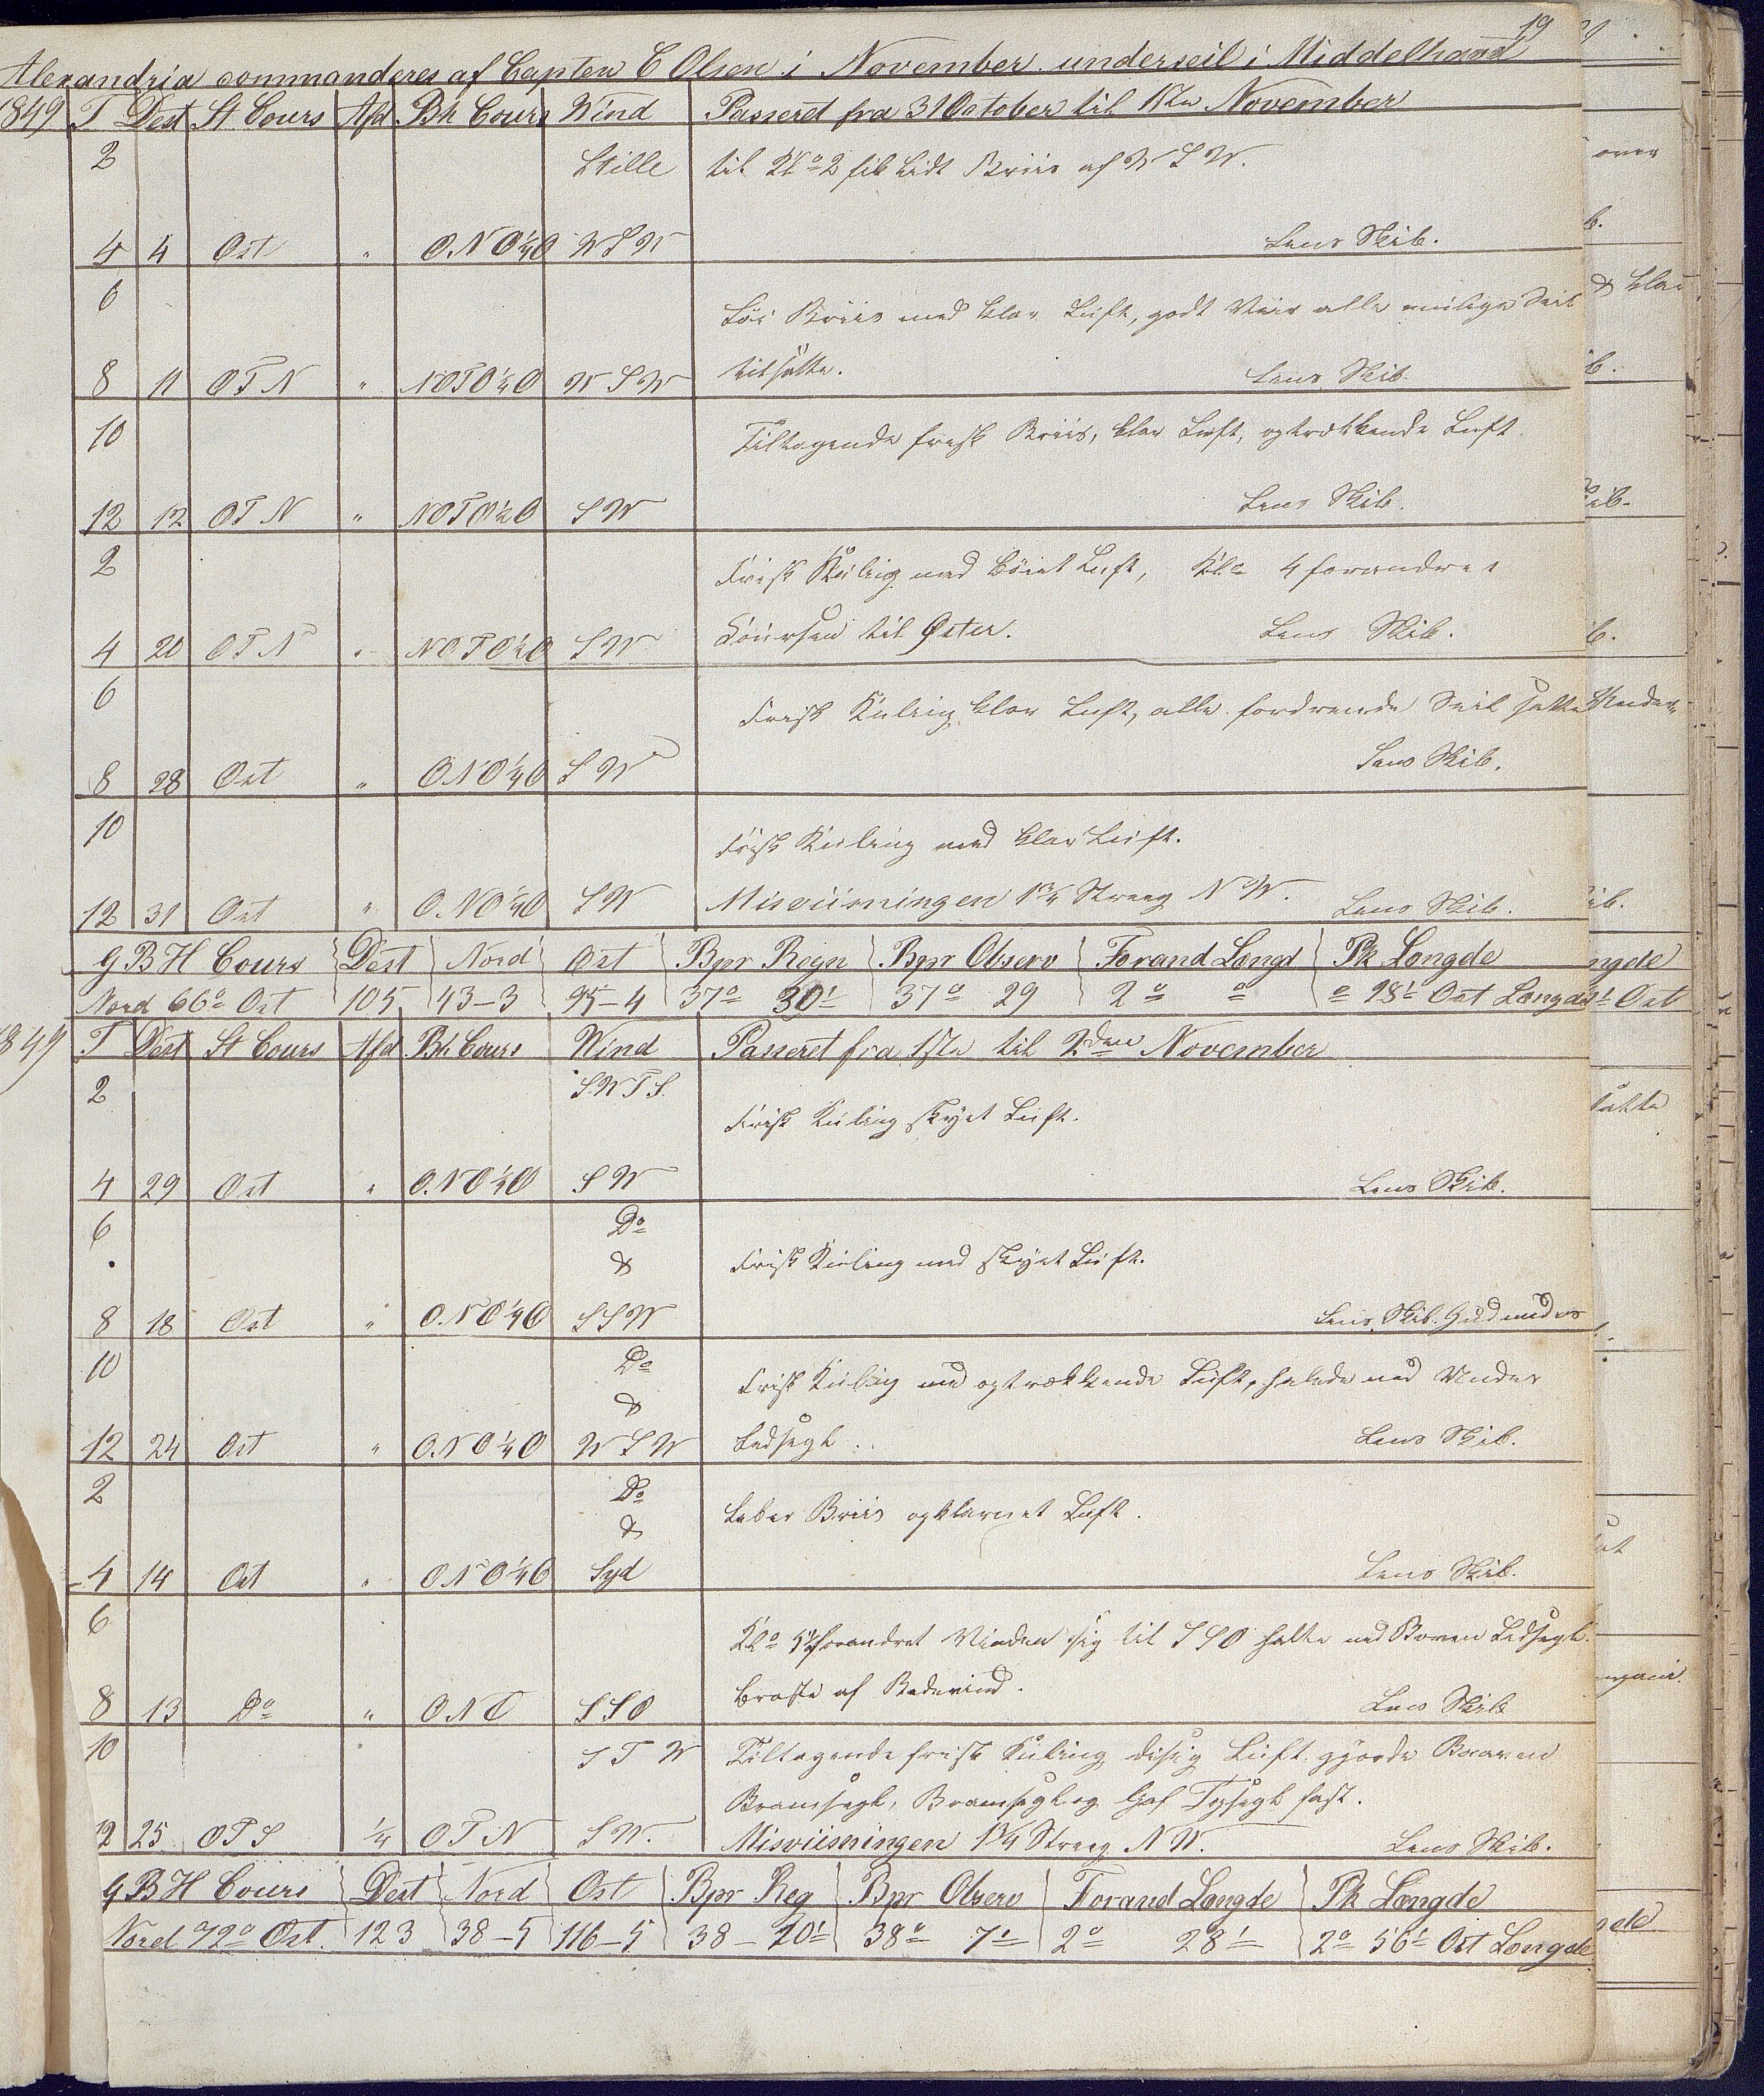 19
Alexandria commanderes af Capten C Olsen i November underseil i Middelhavd
1849 T Dest St Cours Afd Bh Cours Wind Passeret fra 31 October til 1ste November
2 Stille til Klo 2 fik lidt Briis af W S W.
4 4 Ost " O.N O ¼ O W S W Lens Skib.
6 Löi Briis med klar Luft, godt Veir alle mulige Seil
8 11 O T N " N O T O ¼ O W S W tilsatte. Lens Skib.
10 Tiltagende frisk Briis, klar Luft, optrækkende Luft.
12 12 O T N " N O T O ½ O S W Lens Skib.
2 Frisk Kuling med böiet Luft, Klo 4 forandret
4 20 O T N " N O T O ½ O S W Coursen til Oster. Lens Skib.
6 Frisk Kuling klar Luft, alle fordrende Seil satte
8 28 Ost " O N O ¼ O S W Lens Skib.
10 Frisk Kuling med klar Luft.
12 31 Ost " O. N O ¼ O S W Misviisningen 1¾ Streeg N W. Lens Skib.
G B H Cours Dest Nord Ost Bpr Regn Bpr Observ Forand Longd Pk Longde
Nord 66° Ost 105 43-3 95-4 37° 30' 37° 29 2° ° ° 28' Ost Længde
1849 T Dest St Cours Afd Bh Cours Wind Passeret fra 1ste til 2den November
2 S.W T S. Frisk Kuling skyet Luft.
4 29 Ost " O. N O ¼ O S W Lens Skib.
6 Do
& Frisk Kuling med skyet Luft.
8 18 Ost " O. N O ¼ O S S W Lens Skib.
10 Do Frisk Kuling med optrækkende Luft, halede ned Under
&
12 24 Ost " O. N O ¼ O W S W Ledsegl. Lens Skib.
2 Do Laber Briis opklarnet Luft.
&
4 14 Ost " O N O ¼ O Syd Lens Skib.
6 Klo 5½ forandret Vinden sig til S S O halte ned Boven Ledsegl.
8 13 Do " O N O S S O braste af Bidevind. Lens Skib
10 S T W Tiltagende frisk Kuling disig Luft gjorde Boaven
Bramsegl, Bramsegl og Gaf Topsegl fast.
12 25 O T S ¼ O T N S W. Misviisningen 1¾ Streeg N W. Lens Skib.
G B H Cours Dest Nord Ost Bpr Reg Bpr Observ Forand Længde Pk Længde
Nord 72° Ost. 123 38-5 116-5 38-20' 38° 7' 2° 28' 2° 56' Ost Længde